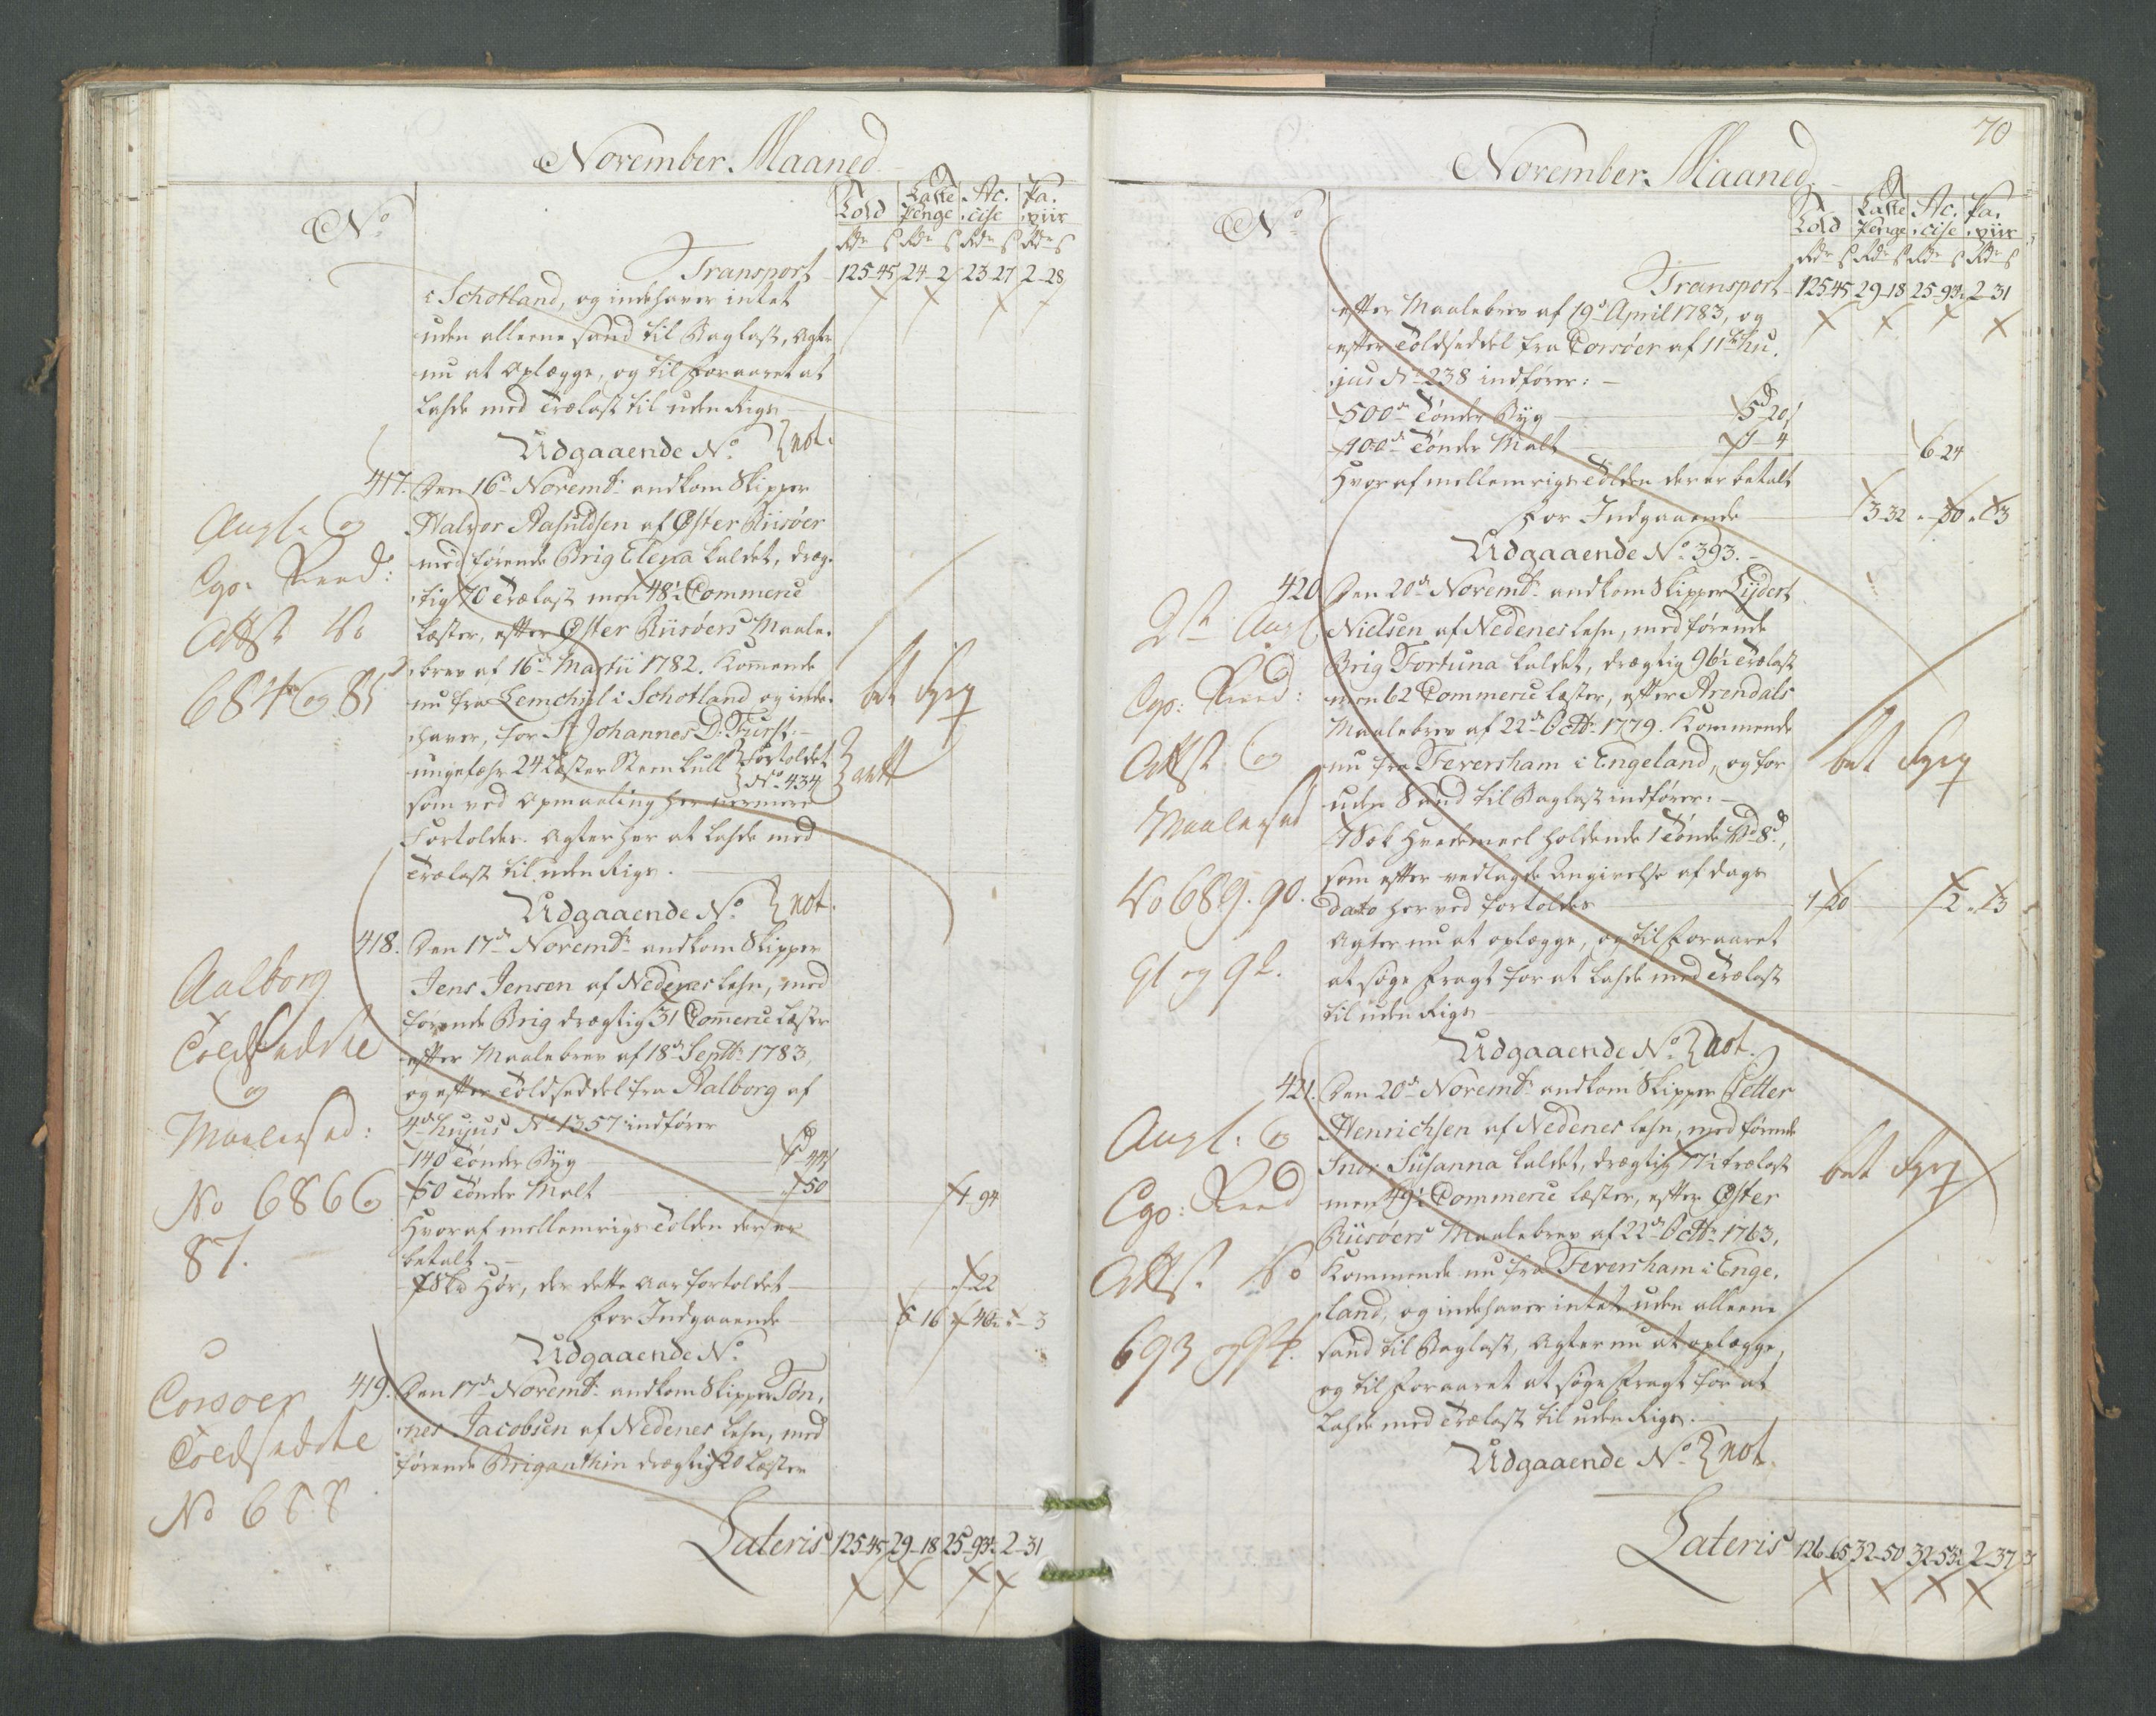 November Maaned
No
Told Laste Penge Ac:cise Pa:piir
Rdr s Rdr s Rdr s Rdr s
Transport 125-45 24-2 23-27 2-28
i Schotland, og indehaver intet
uden alleene sand til Baglast, agter
nu at oplægge, og til foraaret at
Ladde med Trælast til uden Rigs
Udgaaende No. not.
417. Den 16de Novembr ankom Skipper
Halvor Aasuldsen af Øster Riisøer
med førende Brig Elena kaldet, dræg-
tig 70 Trælast men 48½ Commerce
Læster, efter Øster Riisøers Maale-
brev af 16de Martii 1782. Kommende
nu fra Lemchijl i Schotland og inde-
haver, for Sr Johannes D: Fürst:
ungefæhr 24 Læster Steenkull fortoldet No. 434
som ved Opmaaling her nermere
Fortoldes. Agter her at Ladde med
Trælast til uden Rigs.
Udgaaende No. not.
Angl. og
Cgo: Reed:
Attst No
684 og 85
bet
418. Den 17de Novembr ankom Skipper
Jens Jensen af Nedenes Lehn, med
førende Brig drægtig 31 Commerce Læster
efter Maalebrev af 18de Septbr 1783,
og efter Toldseddel fra Aalborg af
4de hujus No 1357 indfører
140 Tønder Byg 1-44
50 Tønder Malt -50
1-94
Hvoraf mellemrigs Tolden der er
betalt.
Hør, der dette Aar fortoldet -22
for Indgaaende 5-16 -3
Udgaaende No.
Aalborg
Toldseddle
og
Maalersed:
No 686 og
87.
419. Den 17de Novembr ankom Skipper Tøn-
nes Jacobsen af Nedenes Lehn, med
førende Briganthin drægtig 20 Læster
Corsoer
Toldseddle
No 688
Lateris 125-45 29-18 25-93½ 2-31
70
November Maaned
No
Told Laste Penge Ac:cise Pa:piir
Rdr s Rdr s Rdr s Rdr s
Transport 125-45 29-18 25-93½ 2-31
efter Maalebrev af 19de April 1783, og
efter Toldseddel fra Corsøer af 11te hu-
jus No 238 indfører:
500de Tønder Byg 5-20
100de Tønder Malt 1-4
6-24
Hvoraf mellemrigs Tolden der er betalt
for Indgaaende 3-32 3
Udgaaende No. 393.
420. Den 20de Novembr ankom Skipper Lijdert
Nielsen af Nedenes Lehn, med førende
Brig Fortuna kaldet, drægtig 96½ Trælast
men 62 Commerce Læster, efter Arendals
Maalebrev af 22de Octbr 1779. Kommende
nu fra Feversham i Engeland, og for
uden Sand til Baglast indfører:
1 Sæk Hvedemeel holdende 1 Tønde
som efter vedlagde Angivelse af dags
dato herved fortoldes 1-20 -2 -3
Agter nu at oplægge, og til Foraaret
at søge Fragt for at Ladde med Trælast
til uden Rigs
Udgaaende No. not.
Cgo: Reed:
Attst og
Maalersed
No 689. 90.
91 og 92.
bet
421. Den 20de Novembr ankom Skipper Petter
Henrichsen af Nedenes Lehn, med førende
Snov Susanna kaldet, drægtig 77½ trælast
men 49½ Commerce Læster, efter Øster
Riisøers Maalebrev af 22de Octbr 1763,
Kommende nu fra Feversham i Enge-
land, og indehaver intet uden alleene
sand til Baglast, Agter nu at oplægge,
og til Foraaret at søge Fragt for at
Ladde med Trælast til uden Rigs.
Udgaaende No. not.
Angl: og
Cgo: Reed
Attst. No
693 og 94.
bet
Lateris 126-65 32-50 32-53½ 2-37